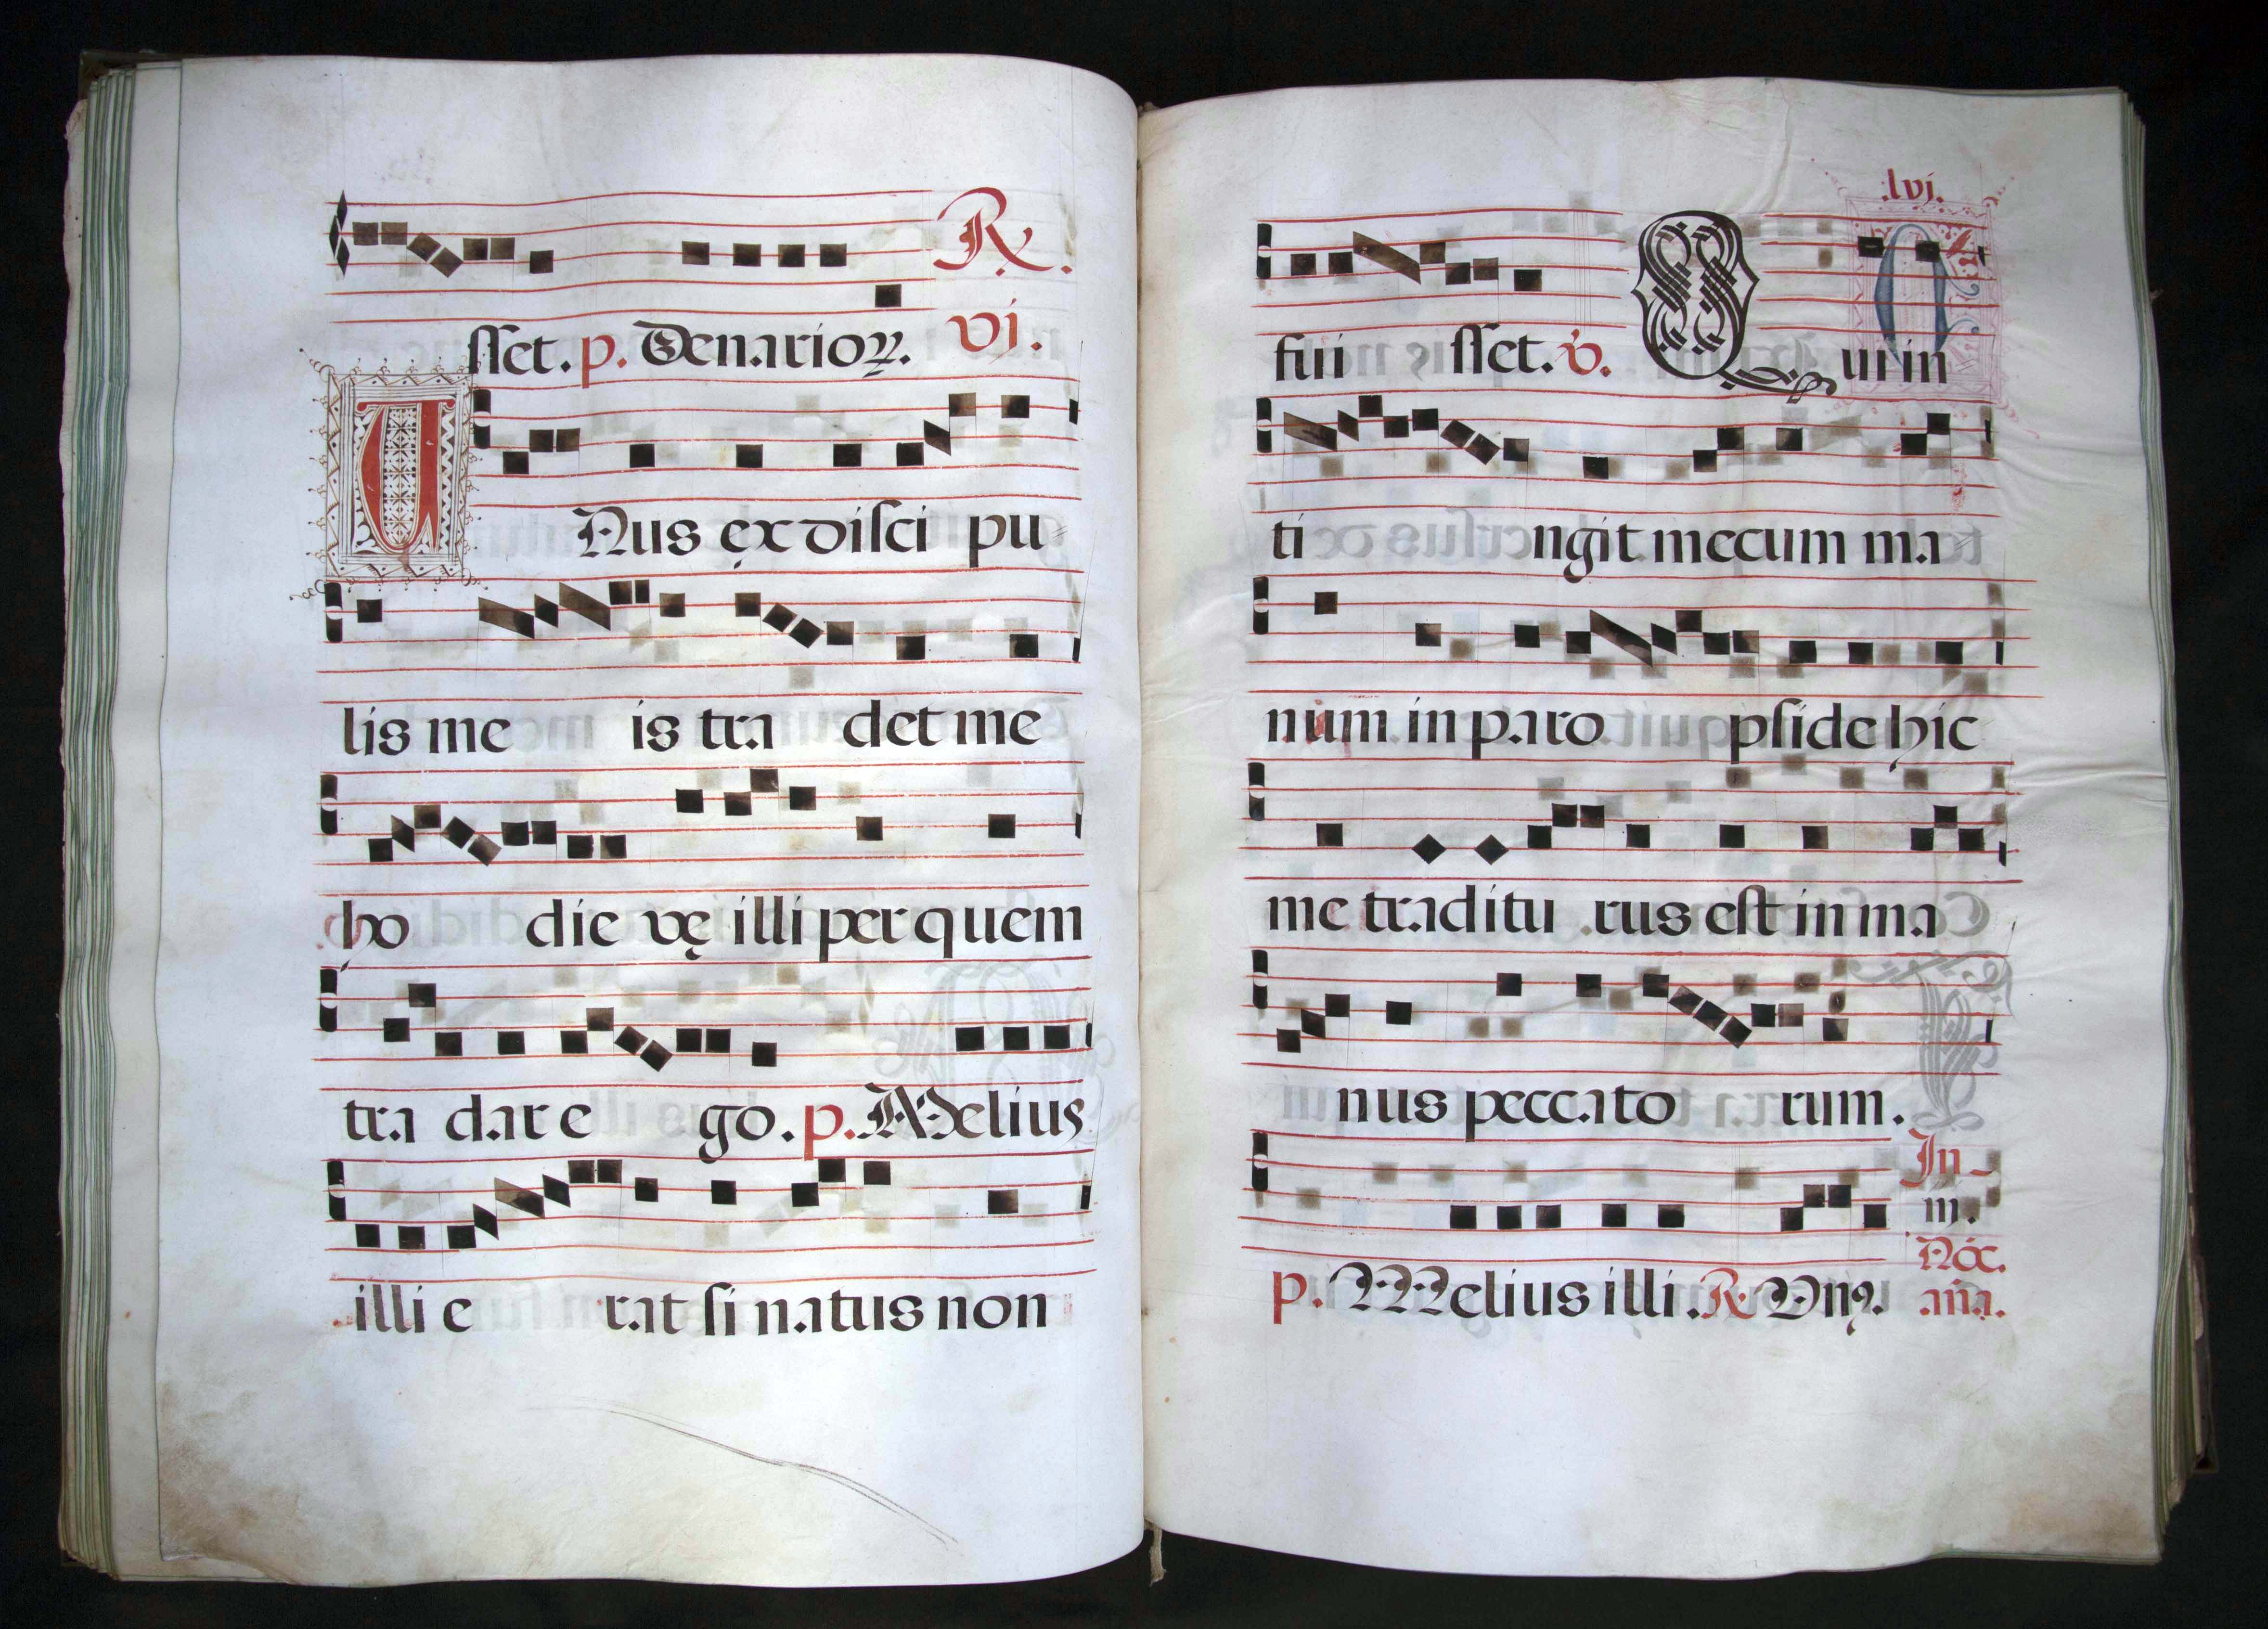 R.
sset. p. Denarioꝝ. vj.
UNus ex disci pu
lis me is tra det me
ho die vę illi per quem
tra dar e go. p. Melius
illi e rat si natus non
.lvj.
fui sset. v. Qui in
ti ngit mecum ma
num in paro pside hic
me traditu rus est in ma
nus pecca to rum.
p. Melius illi. R Un9. In
iij.
Noc.
aña.